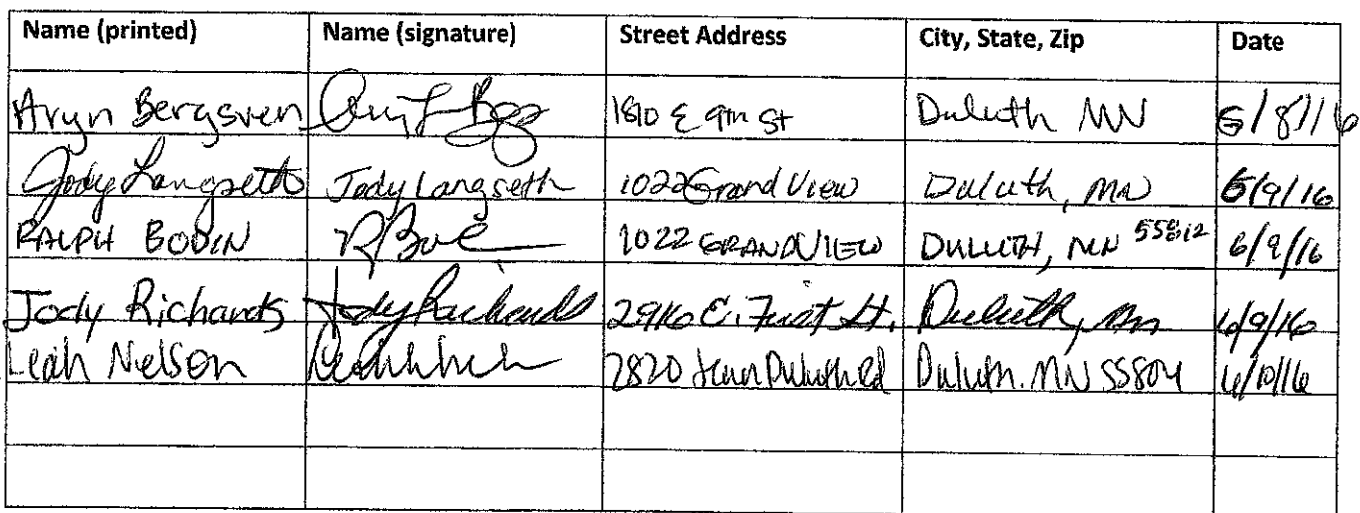 Name (printed) Name (signature) Street Address City, State, Zip Date
Aryn Bergsven 1810 E 9th St Duluth MN 6/8/16
Jody Langseth Jody Langseth 1022 Grand View Duluth, MN 6/9/16
RALPH BODIN 1022 GRANDVIEW DULUTH, MN 55812 6/9/16
Jody Richards Jody Richards 2916 E. First St. Duluth, Mn 6/9/16
Leah Nelson 2820 Jean Duluth Rd Duluth. MN 55804 6/10/16